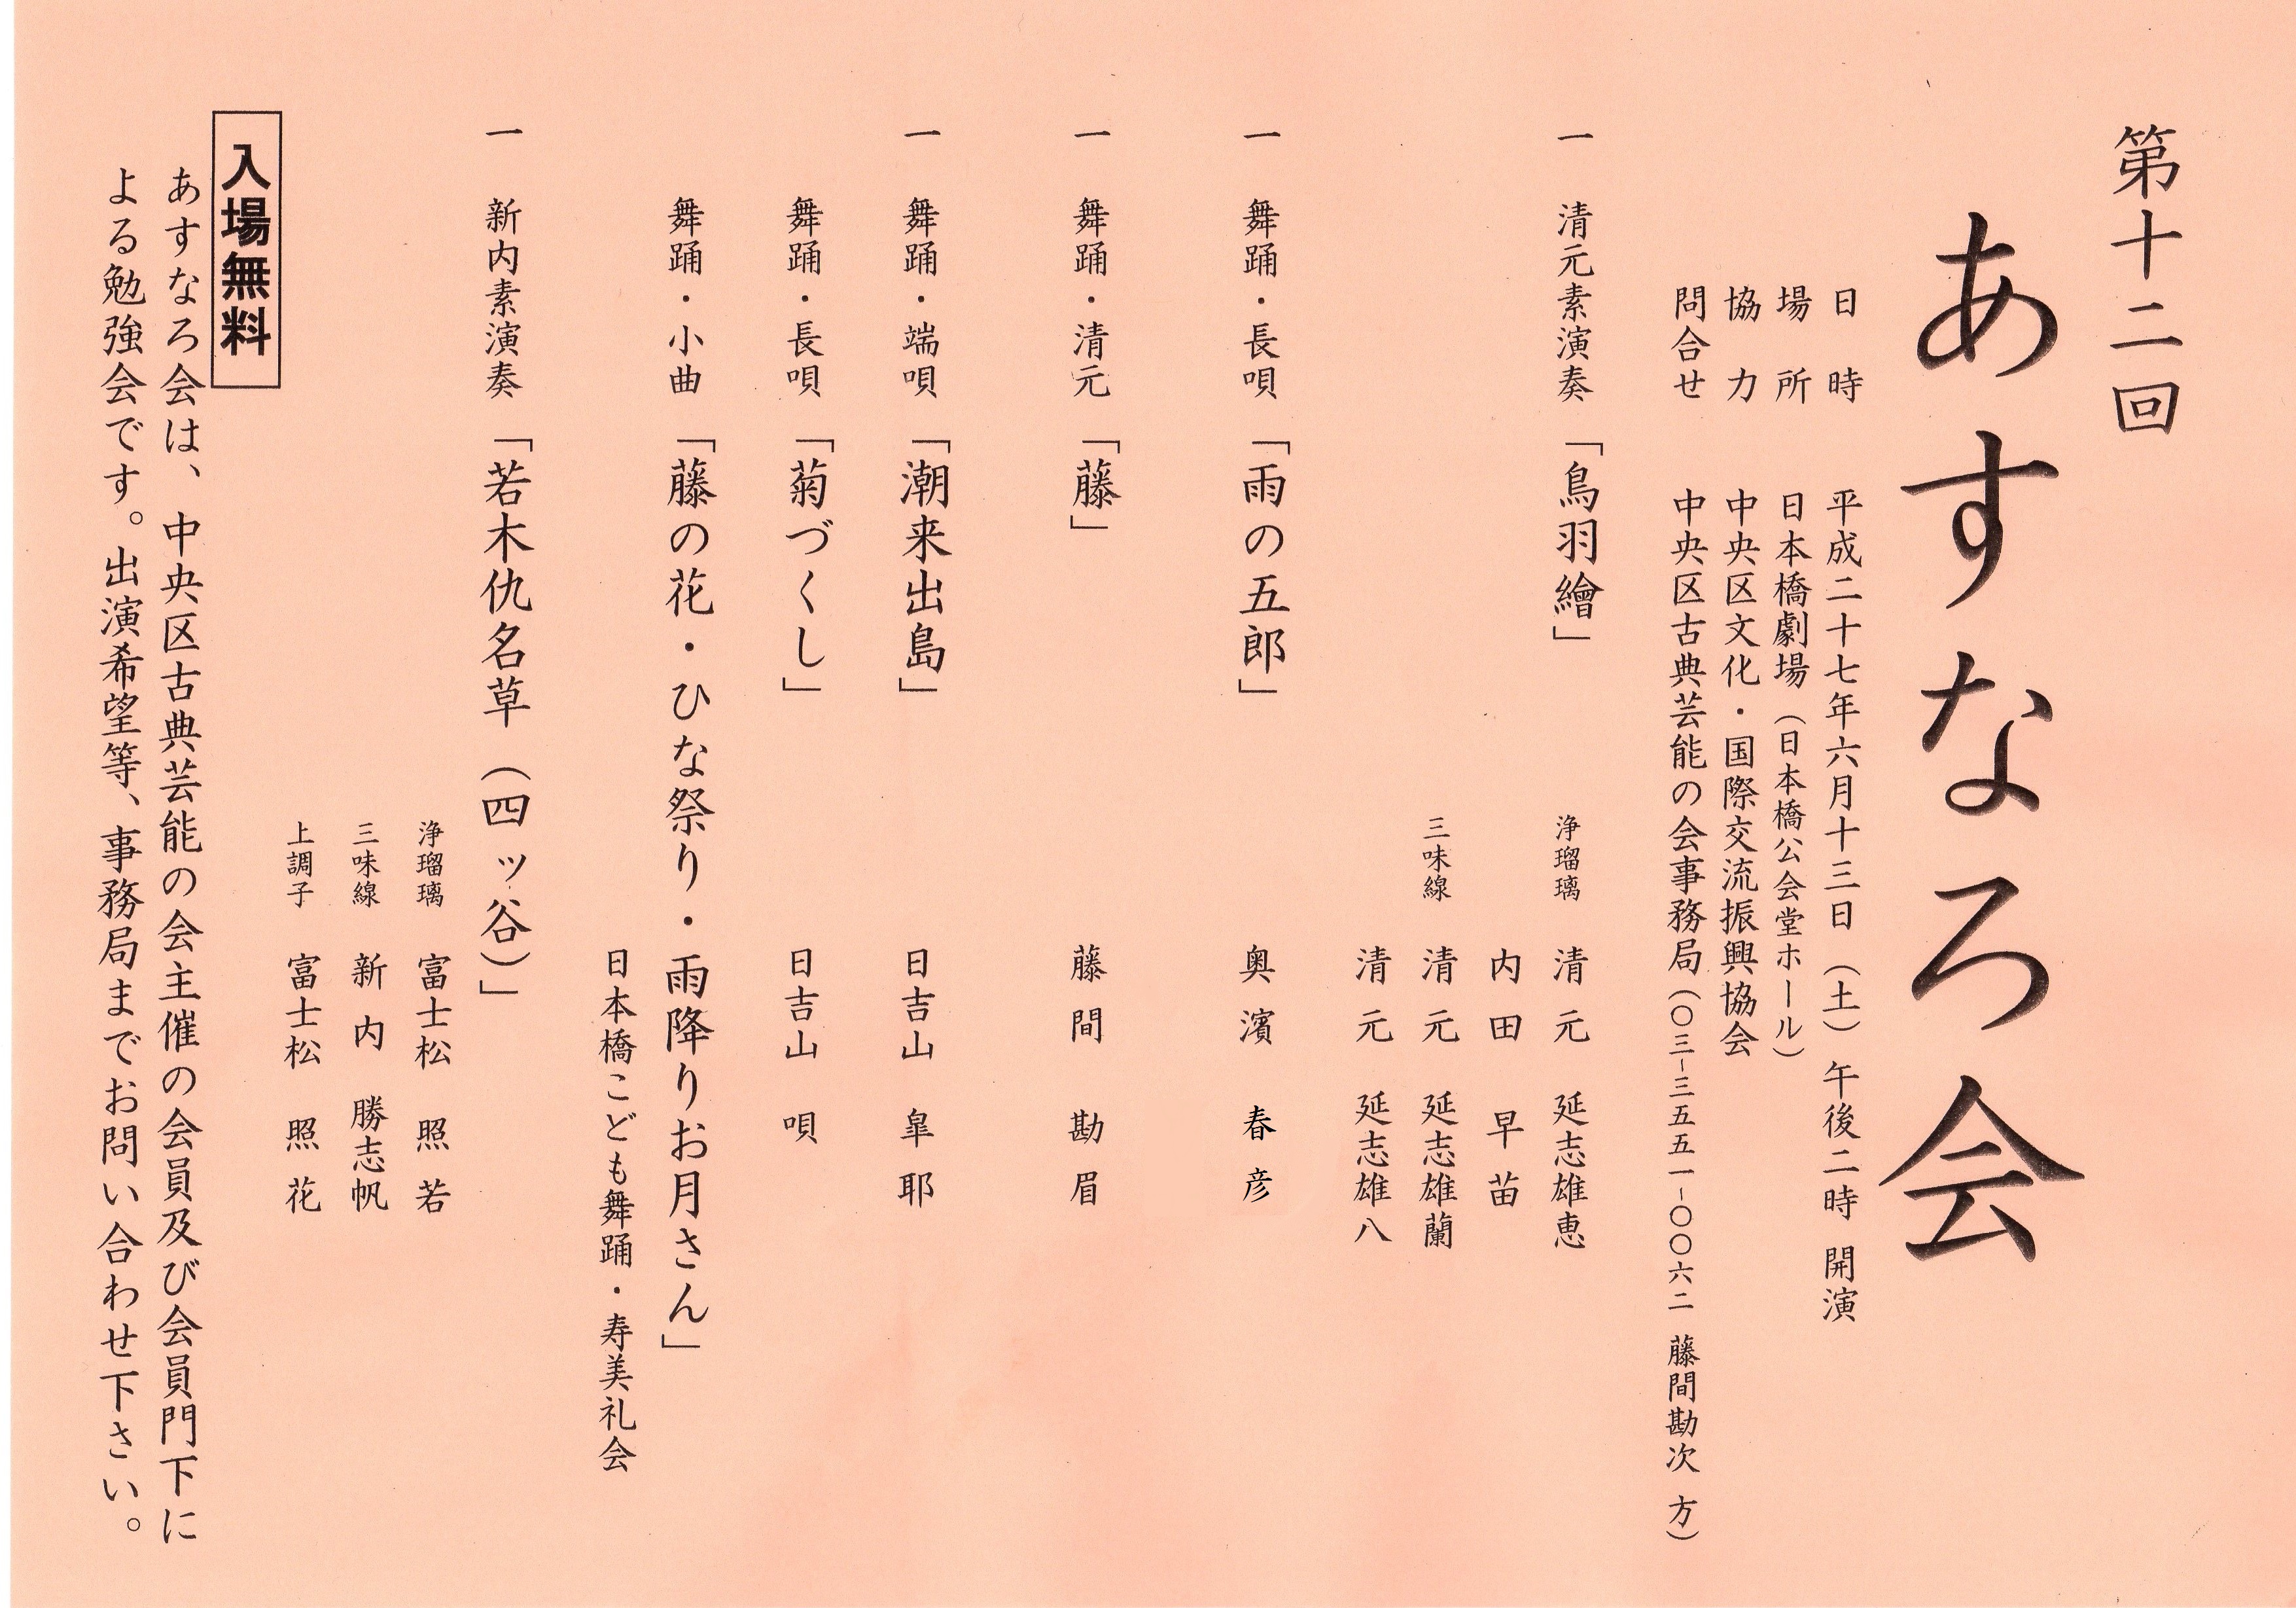 第十二回
あすなろ会
日時 平成二十七年六月十三日(土) 午後二時 開演
場所 日本橋劇場(日本橋公会堂ホール)
協力 中央区文化・国際交流振興協会
問合せ 中央区古典芸能の会事務局(〇三-三五五一-〇〇六二 藤間勘次 方)
一 清元素演奏「鳥羽繪」
浄瑠璃 清元 延志雄恵
内田 早苗
三味線 清元 延志雄蘭
清元 延志雄八
一 舞踊・長唄「雨の五郎」 奥濱 春彦
一 舞踊・清元「藤」 藤間 勘眉
一 舞踊・端唄「潮来出島」 日吉山 皐耶
舞踊・長唄「菊づくし」 日吉山 唄
舞踊・小曲「藤の花・ひな祭り・雨降りお月さん」
日本橋こども舞踊・寿美礼会
一 新内素演奏「若木仇名草(四ッ谷)」
浄瑠璃 富士松 照若
三味線 新内 勝志帆
上調子 富士松 照花
入場無料
あすなろ会は、中央区古典芸能の会主催の会員及び会員門下に
よる勉強会です。出演希望等、事務局までお問い合わせ下さい。